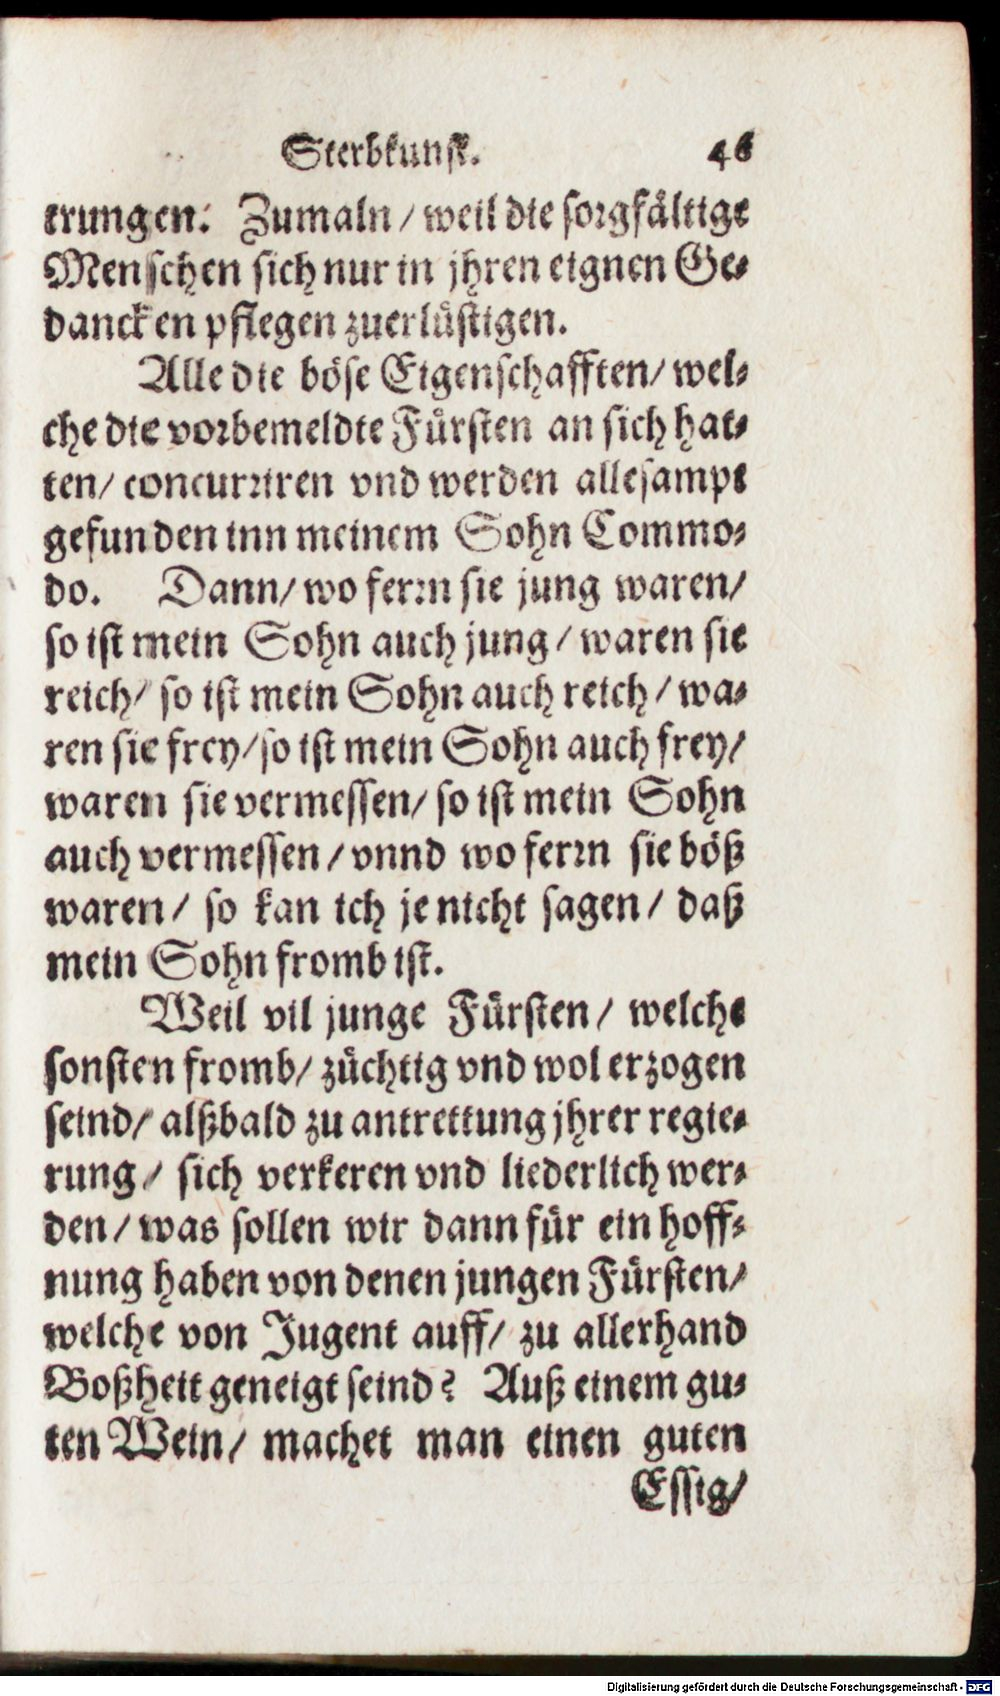 Sterbkunſt. 46
trungen. Zumaln / weil die ſorgfältige
Menſchen ſich nur in jhren eignen Ge-
dancken pflegen zuerlüſtigen.
Alle die böſe Eigenſchafften / wel-
che die vorbemeldte Fürſten an ſich hat-
ten / concurriren vnd werden alleſampt
gefunden inn meinem Sohn Commo-
do. Dann / wo ferrn ſie jung waren /
ſo iſt mein Sohn auch jung / waren ſie
reich / ſo iſt mein Sohn auch reich / wa-
ren ſie frey / ſo iſt mein Sohn auch frey /
waren ſie vermeſſen / ſo iſt mein Sohn
auch vermeſſen / vnnd wo ferrn ſie böß
waren / ſo kan ich je nicht ſagen / daß
mein Sohn fromb iſt.
Weil vil junge Fürſten / welche
ſonſten fromb / züchtig vnd wol erzogen
ſeind / alßbald zu antrettung jhrer regie-
rung / ſich verkeren vnd liederlich wer-
den / was ſollen wir dann für ein hoff-
nung haben von denen jungen Fürſten /
welche von Jugent auff / zu allerhand
Boßheit geneigt ſeind? Auß einem gu-
ten Wein / machet man einen guten
Eſſig /
Digitalisierung gefördert durch die Deutsche Forschungsgemeinschaft - DFG